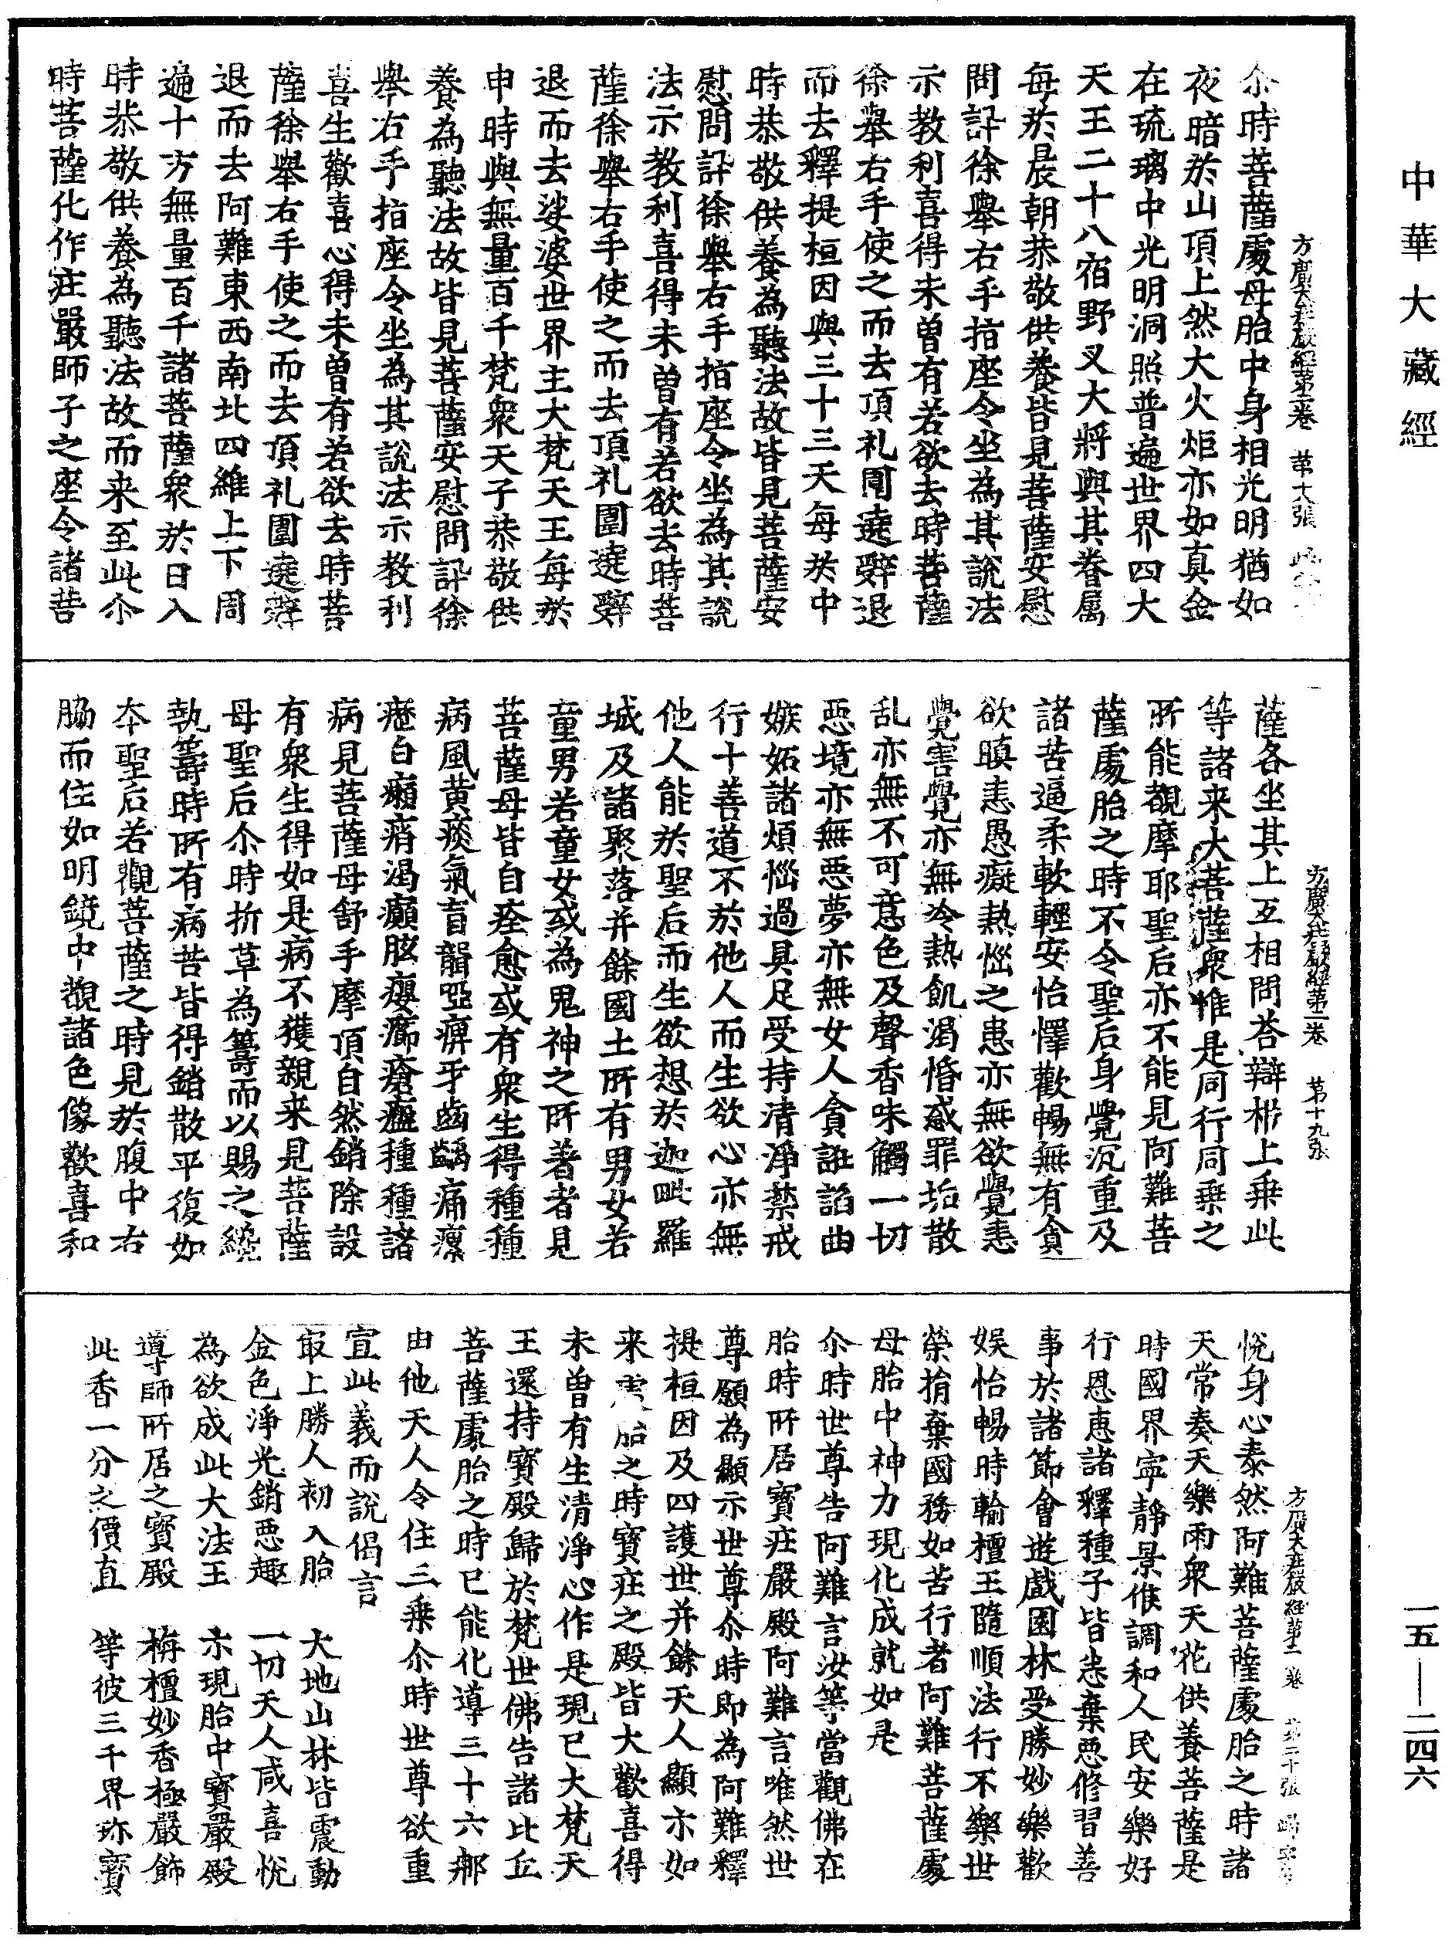 中華大藏經
方廣大莊嚴經第二卷 第十八張
尒時菩薩處母胎中身相光明猶如
夜暗於山頂上然大火炬亦如真金
在琉璃中光明洞照普遍世界四大
天王二十八宿野叉大將與其眷屬
每於晨朝恭敬供養皆見菩薩安慰
問訊徐舉右手指座令坐為其說法
示教利喜得未曾有若欲去時菩薩
徐舉右手使之而去頂礼圍遶辝退
而去釋提桓因與三十三天每於中
時恭敬供養為聽法故皆見菩薩安
慰問訊徐舉右手指座令坐為其說
法示教利喜得未曾有若欲去時菩
薩徐舉右手使之而去頂礼圍遶辝
退而去娑婆世界主大梵天王每於
申時與無量百千梵衆天子恭敬供
養為聽法故皆見菩薩安慰問訊徐
舉右手指座令坐為其說法示教利
喜生歡喜心得未曾有若欲去時菩
薩徐舉右手使之而去頂礼圍遶辝
退而去阿難東西南北四維上下周
遍十方無量百千諸菩薩衆於日入
時恭敬供養為聽法故而来至此尒
時菩薩化作莊嚴師子之座令諸菩
方廣大莊嚴經第二卷 第十九張
薩各坐其上互相問荅辯析上乗此
等諸来大菩薩衆惟是同行同乗之
所能覩摩耶聖后亦不能見阿難菩
薩處胎之時不令聖后身覺沉重及
諸苦逼柔軟輕安怡懌歡暢無有貪
欲瞋恚愚癡熱惱之患亦無欲覺恚
覺害覺亦無冷熱飢渴惛惑罪垢散
乱亦無不可意色及聲香味觸一切
惡境亦無惡夢亦無女人貪誑諂曲
嫉妬諸煩惱過具足受持清淨禁戒
行十善道不於他人而生欲心亦無
他人能於聖后而生欲想於迦毗羅
城及諸聚落并餘國土所有男女若
童男若童女或為鬼神之所著者見
菩薩母皆自痊愈或有衆生得種種
病風黄痰氣盲聾瘂痹牙齒齲痛瘰
癧白癩痟渴癲眩癭㿈瘡癰種種諸
病見菩薩母舒手摩頂自然銷除設
有衆生得如是病不獲親来見菩薩
母聖后尒時折草為籌而以賜之纔
執籌時所有病苦皆得銷散平復如
本聖后若觀菩薩之時見於腹中右
脇而住如明鏡中覩諸色像歡喜和
方廣大莊嚴經第二卷 第二十張
悅身心泰然阿難菩薩處胎之時諸
天常奏天樂雨衆天花供養菩薩是
時國界寧靜景候調和人民安樂好
行恩惠諸釋種子皆悉棄惡修習善
事於諸節會遊戲園林受勝妙樂歡
娛怡暢時輸檀王隨順法行不樂世
榮捐棄國務如苦行者阿難菩薩處
母胎中神力現化成就如是
尒時世尊告阿難言汝等當觀佛在
胎時所居寶莊嚴殿阿難言唯然世
尊願為顯示世尊尒時即為阿難釋
提桓因及四護世并餘天人顯示如
来處胎之時寶莊之殿皆大歡喜得
未曾有生清淨心作是現已大梵天
王還持寶殿歸於梵世佛告諸比丘
菩薩處胎之時已能化導三十六那
由他天人令住三乗尒時世尊欲重
宣此義而說偈言
㝡上勝人初入胎 大地山林皆震動
金色淨光銷惡趣 一切天人咸喜悅
為欲成此大法王 示現胎中寶嚴殿
導師所居之寶殿 栴檀妙香極嚴飾
此香一分之價直 等彼三千界珎寶
一五—二四六